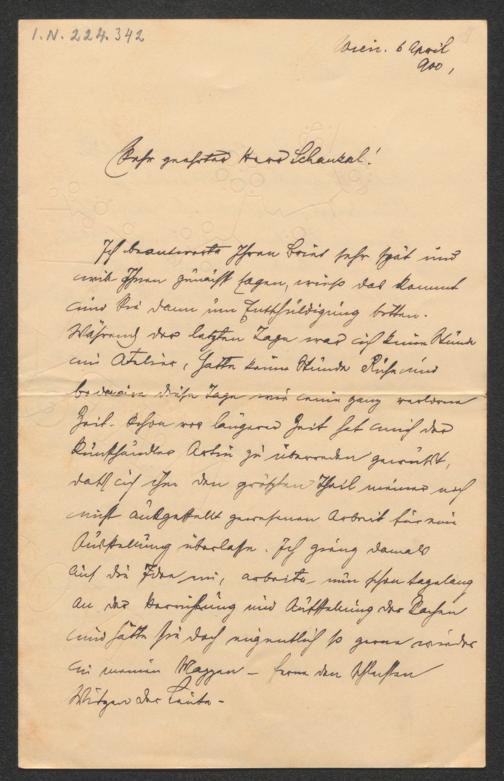 I.N. 224.342
Wien. 6 April
900,
Sehr geehrter Herr Schaukal!
Ich beantworte Ihren Brief sehr spät und
will Ihnen zunächst sagen, wieso das kommt
und Sie dann um Entschuldigung bitten.
Während der letzten Tage war ich keine Stunde
im Atelier, hatte keine Stunde Ruhe und
diese Tage wie eine ganz verlorene
Zeit. Schon vor längerer Zeit hat mich der
Kunsthändler Artin zu überreden gewußt,
daß ich ihm den größten Theil meiner noch
nicht ausgestellt gewesenen Arbeit für eine
Ausstellung überlasse. Ich gieng damals
auf die Idee ein, arbeite nun schon tagelang
an der und Aufstellung der Sachen
und hätte sie doch eigentlich so gerne wieder
in meinen Mappen – ferne den schlechten
Witzen der Leute –